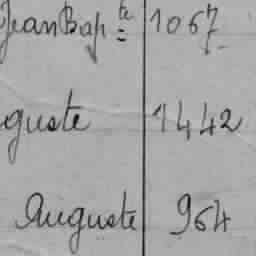 Jean Bapte 1067
guste 1442
Auguste 964